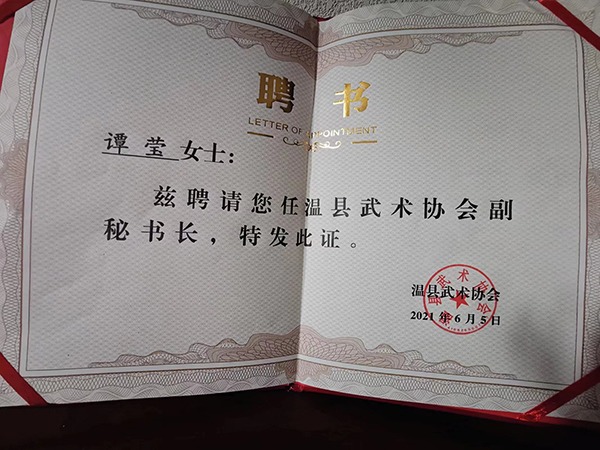 聘书
LETTER OF APPOINTMENT
谭 莹 女士：
兹聘请您任温县武术协会副
秘书长，特发此证。
温县武术协会
2021 年 6 月 5 日